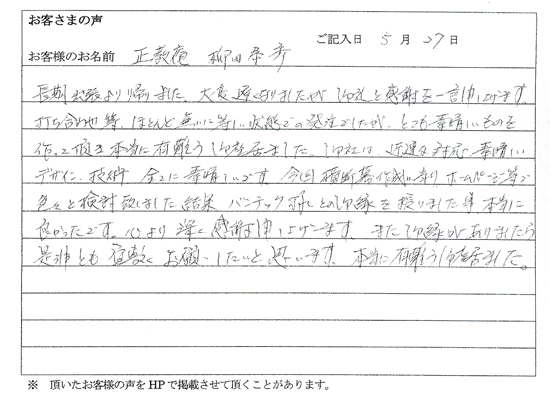 お客さまの声
ご記入日 5 月 27 日
お客様のお名前 正教庵 柳田泰秀
長期出張より帰りました。大変遅くなりましたが御礼と感謝を一言申し上げます。
打ち合わせ等、ほとんど無いに等しい状態での発注でしたが、とても素晴しいものを
作って頂き本当に有難う御座居ました。御社は、迅速な対応、素晴しい
デザイン、技術 全てに素晴しいです。今回横断幕作成に辺り ホームページ等で
色々と検討致しました結果 バンテック様との御縁を授りました事 本当に
良かったです。心より深く感謝申し上げます。また御縁がありましたら
是非とも宜敷くお願いしたいと思います。本当に有難う御座居ました。
※ 頂いたお客様の声をHPで掲載させて頂くことがあります。